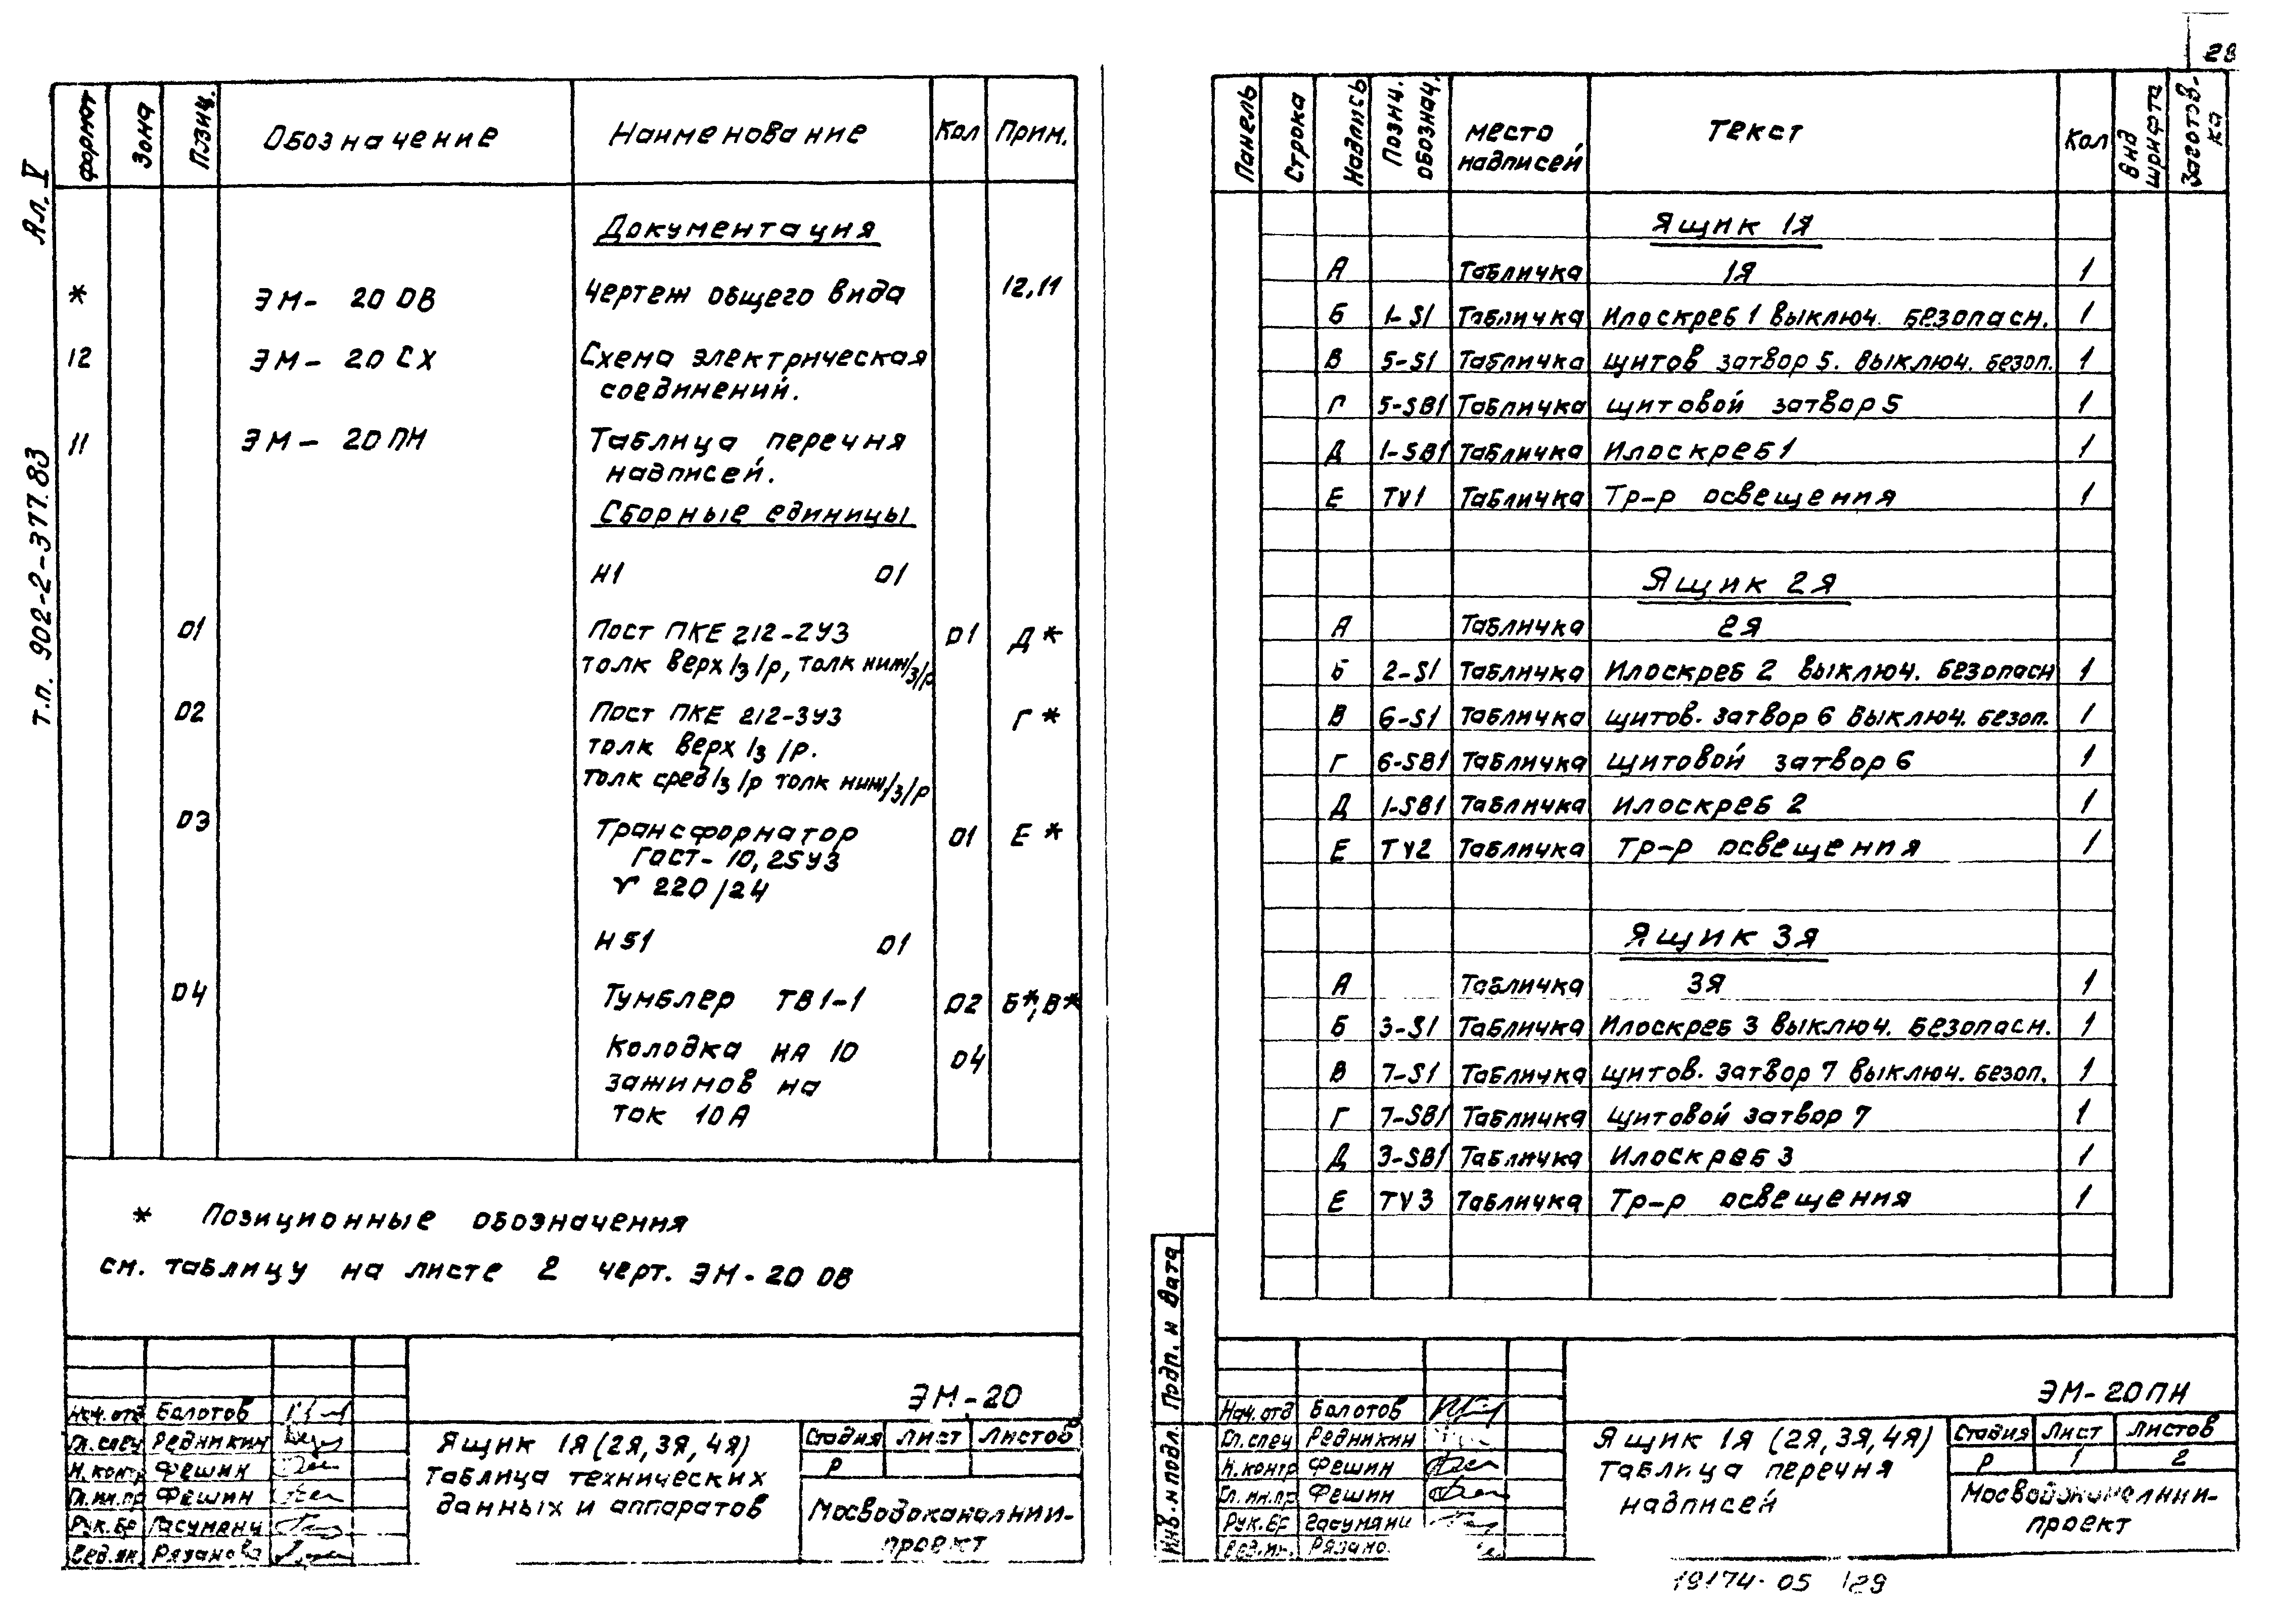 28
Ал. V
т.п. 902-2-377.83
Формат Зона Позиц. Обозначение Наименование Кол Прим.
Документация
* ЭМ- 20 ОВ Чертеж общего вида 12,11
12 ЭМ- 20 СХ Схема электрическая
соединений.
11 ЭМ- 20 ПН Таблица перечня
надписей.
Сборные единицы
Н1 01
01 Пост ПКЕ 212-2У3 01 Д*
толк верх/з/р, толк ниж/з/р
02 Пост ПКЕ 212-3У3 Г*
толк верх/з/р.
толк сред/з/р толк ниж/з/р
03 Трансформатор 01 Е*
Гост- 10,25У3
220/24
Н51 01
04 Тумблер ТВ1-1 02 Б*, В*
Колодка на 10 04
зажимов на
ток 10А
* Позиционные обозначения
см. таблицу на листе 2 черт. ЭМ-20 ОВ
ЭМ-20
Нач.отд Болотов
Гл.спец Редникин
Н.контр Фешин
Гл.ин.пр Фешин
Рук.бр
Вед.ин. Рязанова
Ящик 1Я (2Я, 3Я, 4Я)
Таблица технических
данных и аппаратов
Стадия Лист Листов
Р
Мосводоканалнии-
проект
Панель Строка Надпись Позиц. обознач. Место надписей Текст Кол Вид шрифта Заготов-ка
Ящик 1Я
А Табличка 1Я 1
Б 1-S1 Табличка Илоскреб 1 выключ. безопасн. 1
В 5-S1 Табличка щитов затвор 5. выключ. безоп. 1
Г 5-SB1 Табличка щитовой затвор 5 1
Д 1-SB1 Табличка Илоскреб 1 1
Е TV1 Табличка Тр-р освещения 1
Ящик 2Я
А Табличка 2Я 1
Б 2-S1 Табличка Илоскреб 2 выключ. безопасн 1
В 6-S1 Табличка щитов. затвор 6 выключ. безоп. 1
Г 6-SB1 Табличка щитовой затвор 6 1
Д 1-SB1 Табличка Илоскреб 2 1
Е TV2 Табличка Тр-р освещения 1
Ящик 3Я
А Табличка 3Я 1
Б 3-S1 Табличка Илоскреб 3 выключ. безопасн. 1
В 7-S1 Табличка щитов. затвор 7 выключ. безоп. 1
Г 7-SB1 Табличка щитовой затвор 7 1
Д 3-SB1 Табличка Илоскреб 3 1
Е TV3 Табличка Тр-р освещения 1
Инв.н подл. Подп. и дата
ЭМ-20ПН
Нач.отд Болотов
Гл.спец Редникин
Н.контр Фешин
Гл.ин.пр Фешин
Рук.бр
Вед.ин.
Ящик 1Я (2Я, 3Я, 4Я)
Таблица перечня
надписей
Стадия Лист Листов
Р 1 2
Мосводоканалнии-
проект
19174-05 29